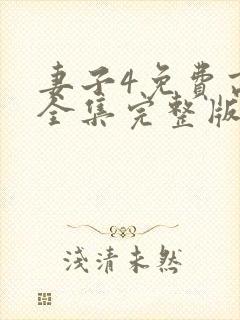 妻子4免費
全集完整版
淺清未然